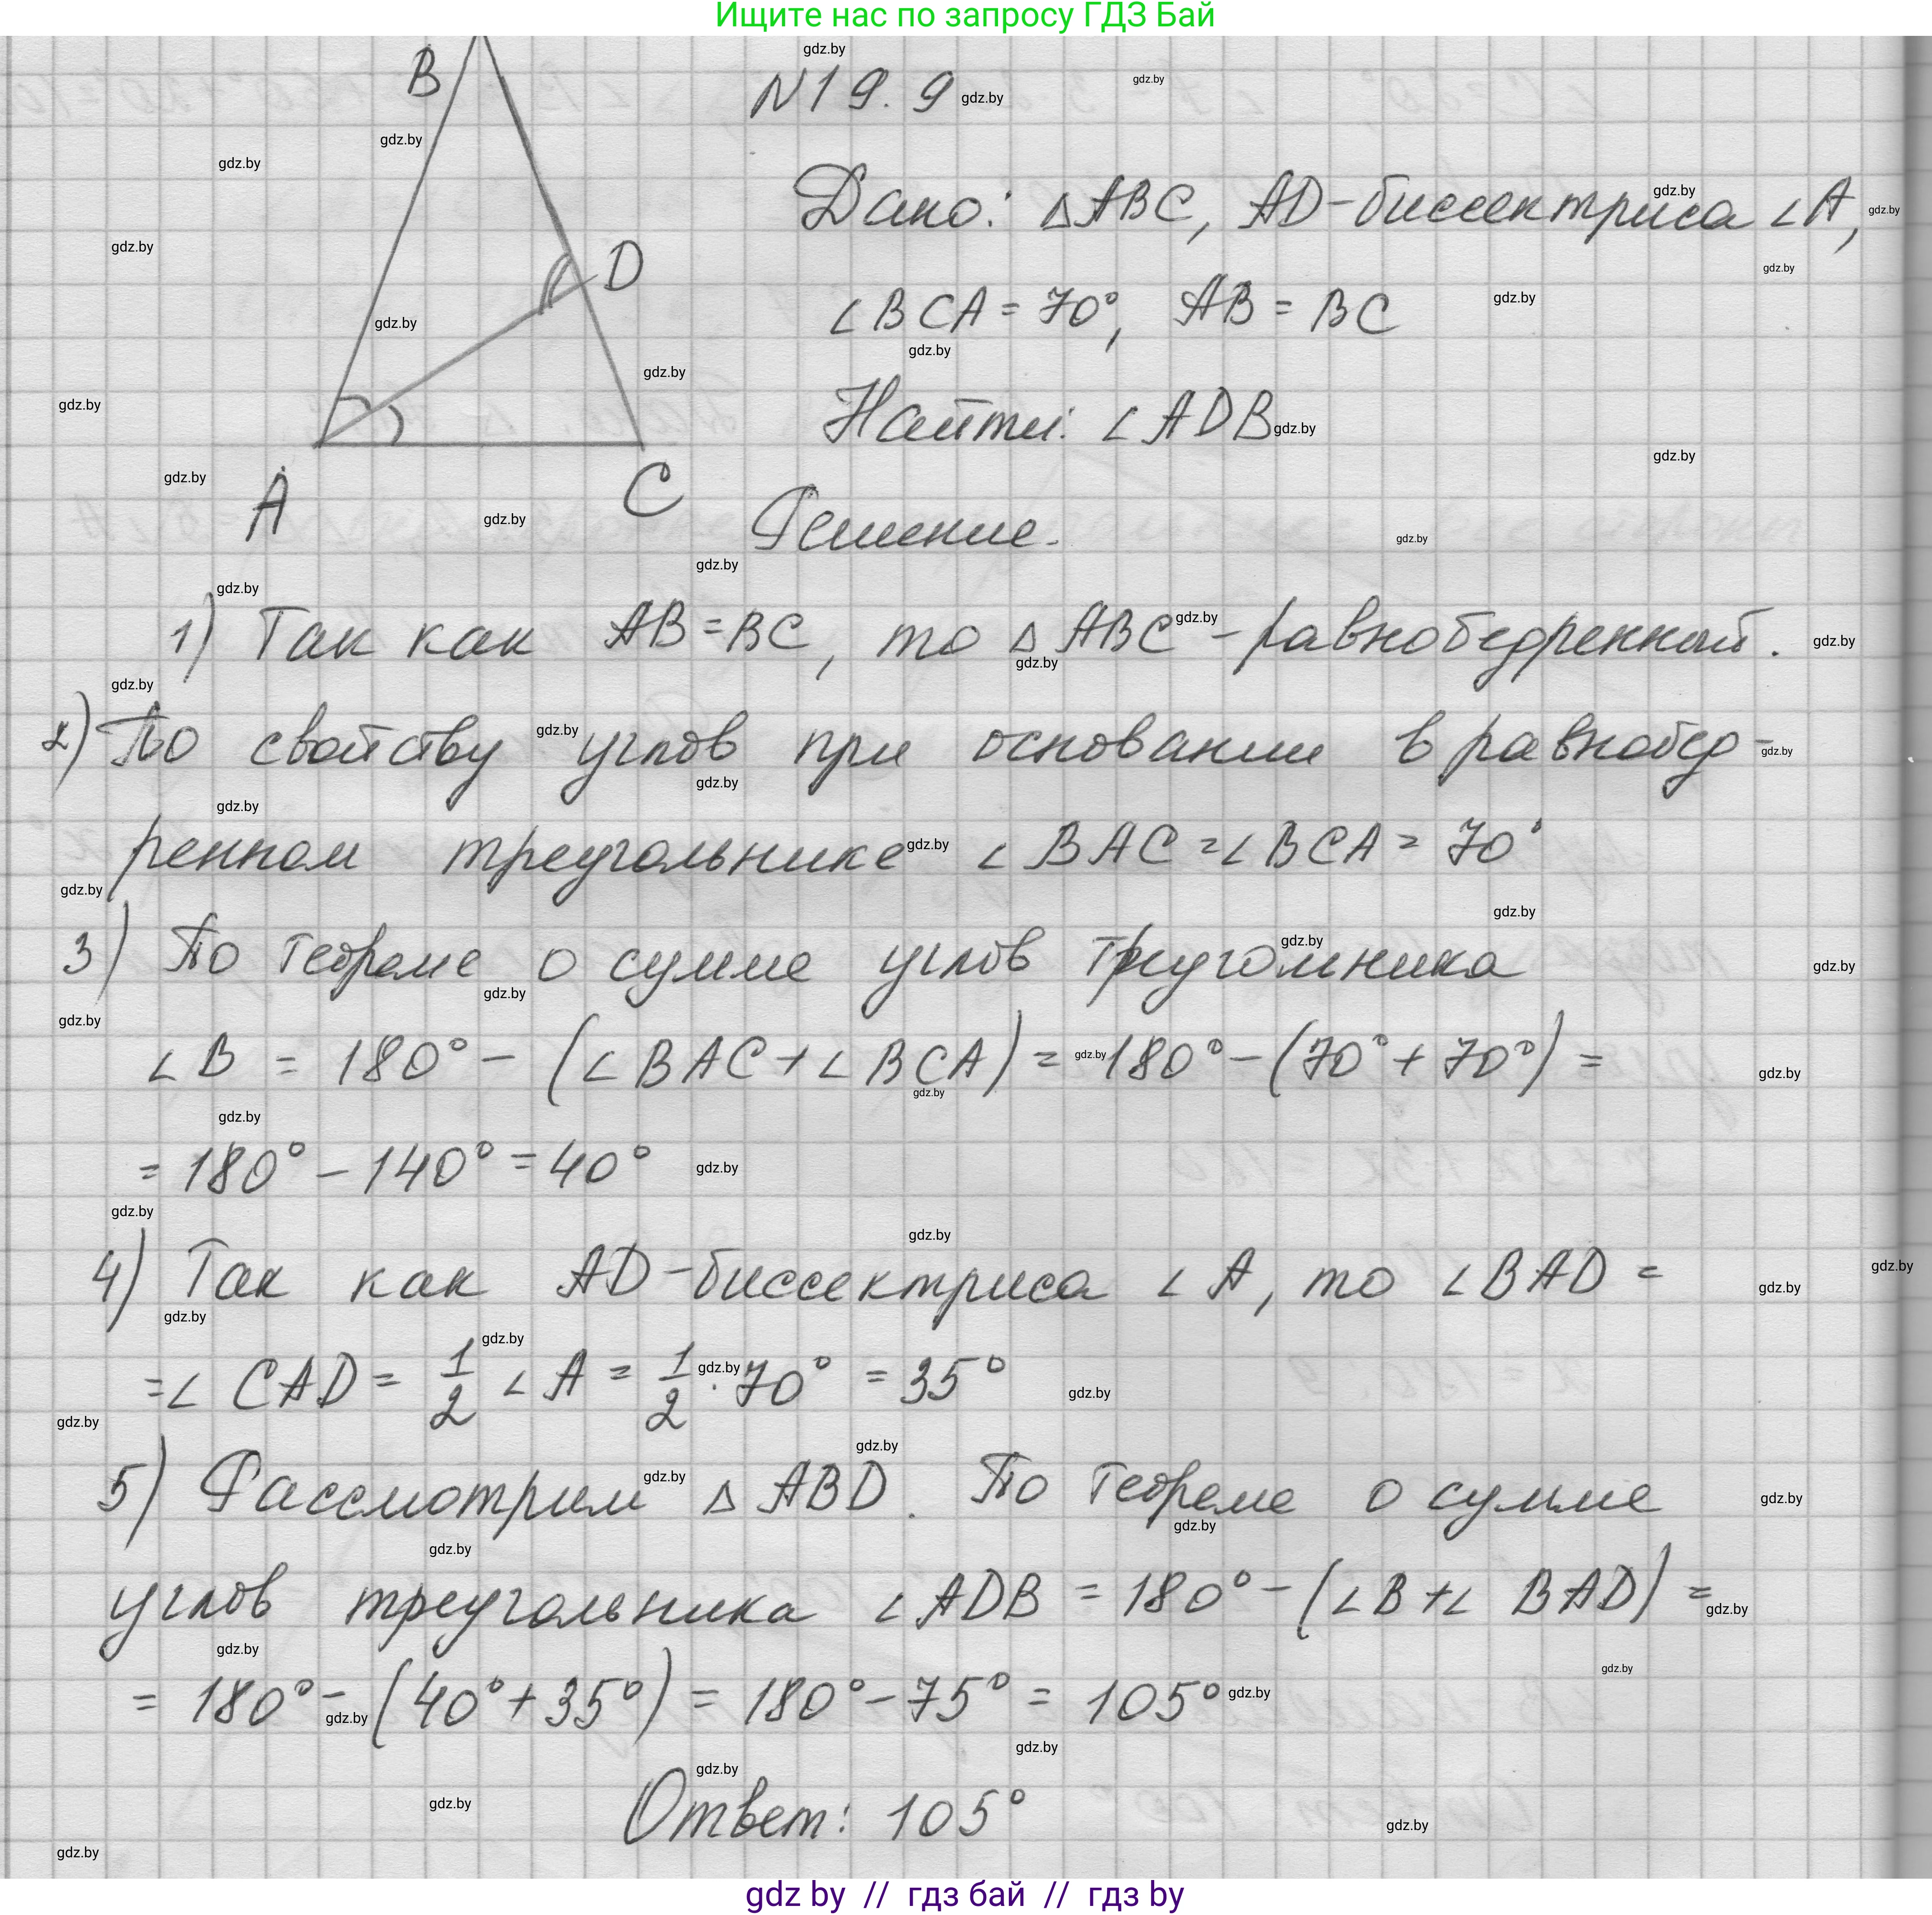 Ищите нас по запросу ГДЗ Бай
B
D
A
C
N19.9
Дано: △ABC, AD-биссектриса ∠A,
∠BCA = 70°, AB = BC
Найти: ∠ADB
Решение.
1) Так как AB=BC, то △ABC-равнобедренный.
2) По свойству углов при основании в равнобед-
ренном треугольнике ∠BAC=∠BCA = 70°
3) По теореме о сумме углов треугольника
∠B = 180° - (∠BAC+∠BCA) = 180°-(70°+70°) =
= 180° - 140° = 40°
4) Так как AD-биссектриса ∠A, то ∠BAD =
=∠CAD = 1/2 ∠A = 1/2 · 70° = 35°
5) Рассмотрим △ABD. По теореме о сумме
углов треугольника ∠ADB = 180°-(∠B+∠BAD) =
= 180°-(40°+35°) = 180°-75° = 105°
Ответ: 105°
gdz by // гдз бай // гдз by